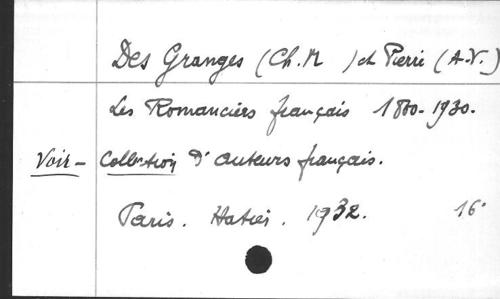 Des Granges (Ch. M ) et Pierri (A.V.)
Les Romanciers français 1800-1930.
Voir - Collection d'auteurs français.
Paris. Hatier. 1932. 16°